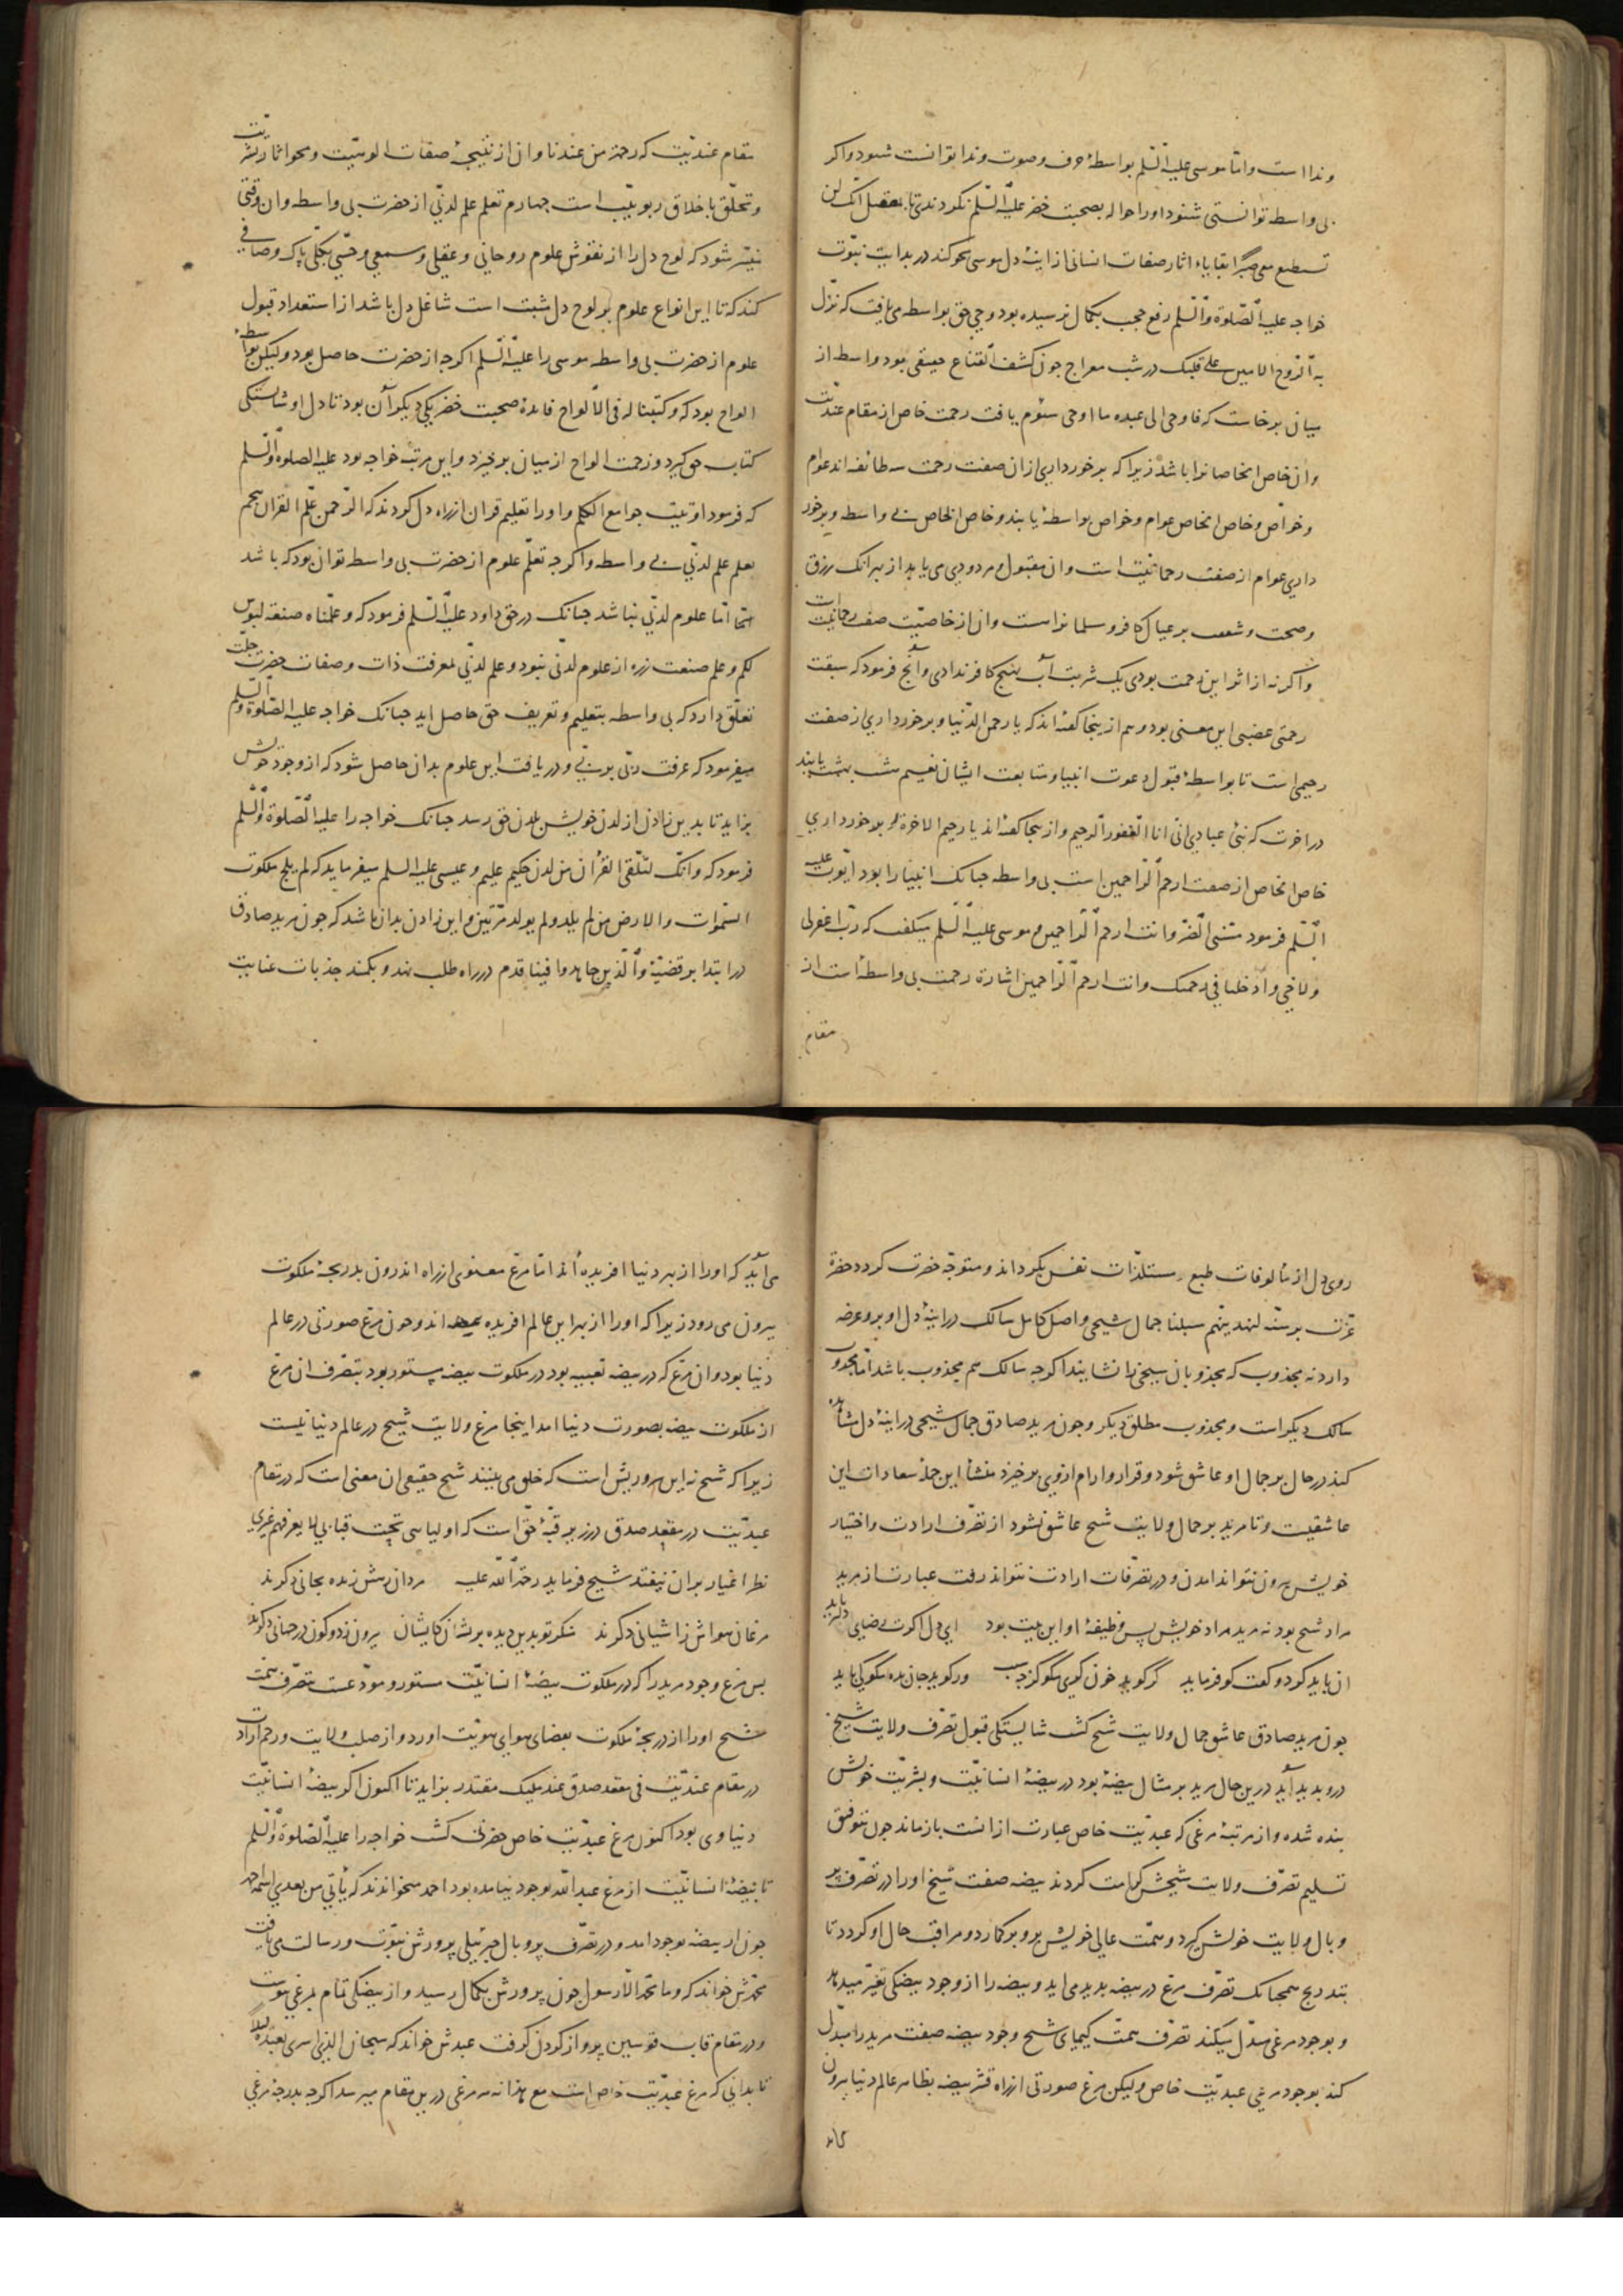 وندا است و امّا موسی علیه السّلم بواسطهٔ حرف وصوت وندا توانست شنود و اکر
بی واسطه توانستی شنود اورا حواله بصحبت خضر علیه السّلم نکردندی تا انک لن
تستطیع معی صبرا بقایاء اثار صفات انسانی از اینهٔ دل موسی محو کند در بدایت نبوّت
خواجه علیه الصّلوة والسّلم رفع حجب بکمال نرسیده بود وحی حق بواسطه می یافت که نزل
به الرّوح الامین علی قلبک در شب معراج جون کشف القناع حقیقی بود واسطه از
میان برخاست که فاوحی الی عبده ما اوحی سئوم یافت رحمت خاص از مقام عندیّت
و ان خاص الخاصانرا باشد زیرا که برخورداری از ان صفت رحمت سه طائفه اند عوام
و خواصّ و خاص الخاص عوام و خواص بواسطه یابند و خاص الخاص بی واسطه و برخور
داری عوام از صفت رحمانیّت است و ان مقبول و مردود می یابد از بهر انک رزق
و صحت و شفقت بر عیال کافر و مسلمانراست و ان از خاصیّت صفت رحمانیّت است
و اکرنه از اثر این رحمت بودی یک شربت آب بهیج کافر ندادی و آنج فرمود که سبقت
رحمتی غضبی این معنی بود و هم از ینجا کفته اند که یا رحمن الدّنیا و برخورداری از صفت
رحیمی است تا بواسطهٔ قبول دعوت انبیا و متابعت ایشان نعیم هشت بهشت یابند
در اخرت که نبّئ عبادی انّی انا الغفور الرحیم و از ینجا کفته اند یا رحیم الاخرة و برخورداری
خاص الخاص از صفت ارحم الرّاحمین است بی واسطه جنانک انبیا را بود ایّوب علیه
السّلم فرمود مسّنی الضّر و انت ارحم الرّاحمین و موسی علیه السّلم میکفت که ربّ اغفرلی
ولاخی و ادخلنا فی رحمتک و انت ارحم الرّاحمین اشارة رحمت بی واسطه است از
مقام
مقام عندیّت که رحمة من عندنا و ان از نتیجهٔ صفات الوهیّت و محو اثار بشریّت
و تخلّق باخلاق ربوبیّت است جهارم تعلم علم لدنّی از حضرت بی واسطه و ان وقتی
میسّر شود که لوح دل را از نقوش علوم روحانی و عقلی و سمعی و حسّی بکلّی پاک و صافی
کند که تا این انواع علوم بر لوح دل مثبت است شاغل دل باشد از استعداد قبول
علوم از حضرت بی واسطه موسی را علیه السّلم اکرجه از حضرت حاصل بود و لیکن بواسطهٔ
الواح بود که و کتبنا له فی الالواح فایدهٔ صحبت خضر یکی دیکر آن بود تا دل او شایستکی
کتابت حق کیرد و زحمت الواح از میان برخیزد و این مرتبه خواجه بود علیه الصلوة والسّلم
که فرمود اوتیت جوامع الکلم و اورا تعلیم قران از راه دل کردند که الرّحمن علّم القران پنجم
تعلم علم لدنّی بی واسطه و اکرجه تعلّم علوم از حضرت بی واسطه توان بود که باشد
امّا علوم لدنّی نباشد جنانک در حق داود علیه السّلم فرمود که و علّمناه صنعة لبوس
لکم و علم صنعت زره از علوم لدنّی نبود و علم لدنّی بمعرفت ذات و صفات حضرت جلّت
تعلّق دارد که بی واسطه بتعلیم و تعریف حق حاصل اید جنانک خواجه علیه الصّلوة والسّلم
میفرمود که عرفت ربّی بربّی و دریافت این علوم بدان حاصل شود که از وجود خویش
بزاید تا بدین زادن از لدن خویش بلدن حق رسد جنانک خواجه را علیه الصّلوة والسّلم
فرمود که و انّک لتلّقی القرآن من لدن حکیم علیم و عیسی علیه السلم میفرماید که لم یلج ملکوت
السّموات والارض من لم یولد مرّتین و این زادن بدان باشد که جون مرید صادق
در ابتدا بر قضیّهٔ والّذین جاهدوا فینا قدم در راه طلب نهد و بکمند جذبات عنایت
روی دل از مألوفات طبع و مستلذّات نفس بکرداند و متوجّه حضرت کردد حضرة
عزّت بر سنّهٔ لنهدینّهم سبلنا جمال شیخی واصل کامل سالک در اینهٔ دل او برو عرضه
دارد نه مجذوب که مجذوبان شیخی را نشایند اکرجه سالک هم مجذوب باشد امّا مجذوب
سالک دیکر است و مجذوب مطلق دیکر و جون مرید صادق جمال شیخی در اینهٔ دل مشاهده
کند در حال بر جمال او عاشق شود و قرار و ارام از وی برخیزد منشأ این جمله سعادات این
عاشقیست و تا مرید بر جمال ولایت شیخ عاشق نشود از تصّرف ارادت و اختیار
خویش بیرون نتواند امدن و در تصّرفات ارادت نتواند رفت عبارت از مرید
مراد شیخ بود نه مرید مراد خویش پس وظیفهٔ او این بیت بود ای دل اکرت رضایی دلبر باید
ان باید کرد و کفت کو فرماید کر کوید خون کری مکو کز جه سبب ور کوید جان بده مکو کی باید
جون مرید صادق عاشق جمال ولایت شیخ کشت شایستکی قبول تصّرف ولایت شیخ
درو بدید آید درین حال مرید بر مثال بیضهٔ بود در بیضهٔ انسانیّت و بشریّت خویش
بنده شده و از مرتبهٔ مرغی که عبدیّت خاص عبارت از انست باز مانده جون توفیق
تسلیم تصّرف ولایت شیخش کرامت کردند بیضه صفت شیخ اورا در تصّرف پر
و بال ولایت خویش کیرد و همّت عالی خویش برو برکمارد و مراقب حال او کردد تا
بتدریج همجنانک تصّرف مرغ در بیضه بدید می اید و بیضه را از وجود بیضکی تغیّر میدهد
و بوجود مرغی مبدّل میکند تصّرف همّت کیمیای شیخ وجود بیضه صفت مرید را مبدّل
کند بوجود مرغی عبدیّت خاص ولیکن مرغ صورتی از راه قشر بیضه بظاهر عالم دنیا بیرون
می آید که اورا از بهر دنیا افریده اند امّا مرغ معنوی از راه اندرون بدریجهٔ ملکوت
بیرون می رود زیرا که اورا از بهر این عالم افریده اند و جون مرغ صورتی در عالم
دنیا بود و ان مرغ که در بیضه تعبیه بود در ملکوت بیضه مستور بود بتصّرف ان مرغ
از ملکوت بیضه بصورت دنیا امد اینجا مرغ ولایت شیخ در عالم دنیا نیست
زیرا که شیخ نه این سر و ریش است که خلق می بینند شیخ حقیقی ان معنی است که در مقام
عندیّت در مقعد صدق در زیر قبّهٔ حق است که اولیایی تحت قبابی لا یعرفهم غیری
نظر اغیار بران نیفتد شیخ فرماید رحمة الله علیه مردان رهش زنده بجانی دکرند
مرغان هواش ز اشیانی دکرند منکر تو بدین دیده بریشان کایشان بیرون ز دو کون در جهانی دکرند
پس مرغ وجود مرید را که در ملکوت بیضهٔ انسانیّت مستور و مودّعست بتصّرف همّت
شیخ اورا از دریجهٔ ملکوت بفضای هوای هویّت اورد و از صلب ولایت و رحم ارادت
در مقام عندیّت فی مقعد صدق عند ملیک مقتدر بزاید تا اکنون اکر بیضهٔ انسانیّت
دنیاوی بود اکنون مرغ عبدیّت خاص حضرتی کشت خواجه را علیه الصّلوة والسّلم
تا بیضهٔ انسانیّت از مرغ عبد الله بوجود نیامده بود احمد میخواندند که یأتی من بعدی اسمه احمد
جون از بیضه بوجود امد و در تصّرف پر و بال جبرئیلی پرورش نبوّت و رسالت می یافت
محمّدش خواند که و ما محمّد الّا رسول جون پرورش بکمال رسید و از بیضکی تمام بمرغی پیوست
و در مقام قاب قوسین پرواز کردن کرفت عبدش خواند که سبحان الذی اسری بعبده لیلا
تا بدانی که مرغ عبدیّت خاص است مع هذا نه هر مرغی درین مقام میرسد اکرجه بدرجهٔ مرغی